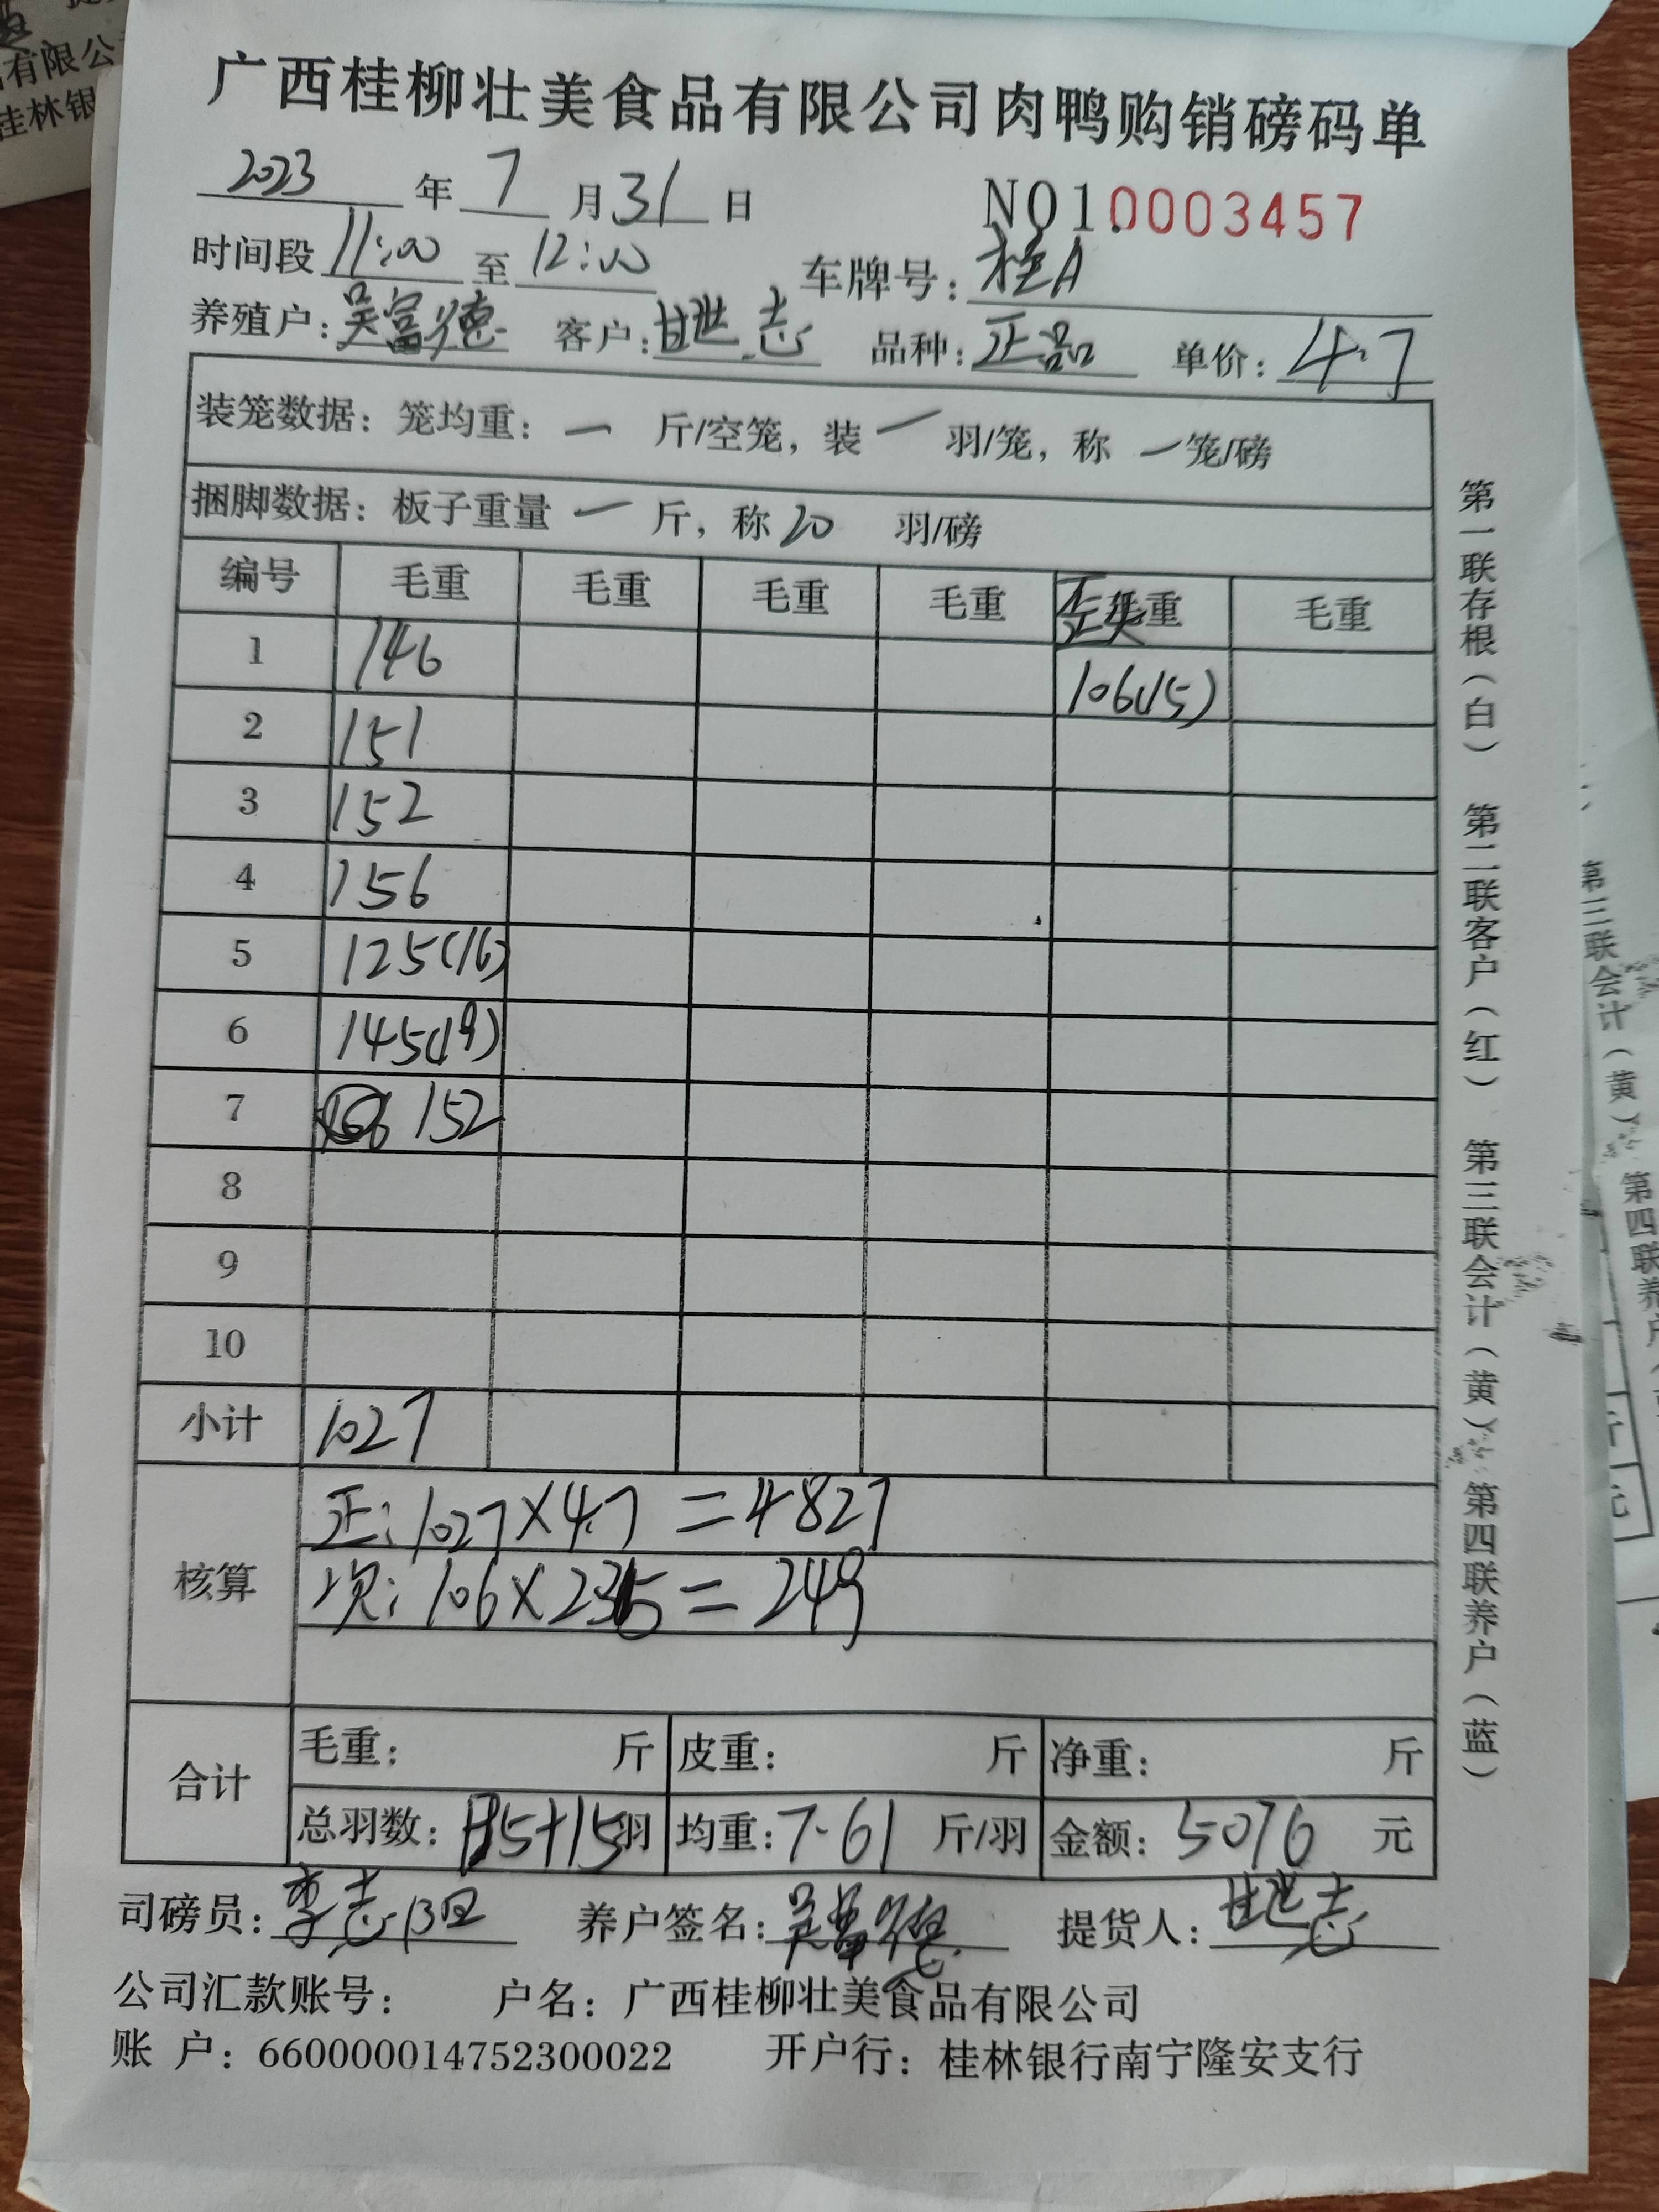 广西桂柳壮美食品有限公司肉鸭购销磅码单
2023 年 7 月 31 日 NO1.0003457
时间段 11:00 至 12:00 车牌号: 桂A
养殖户: 吴富德 客户: 甘世志 品种: 正品 单价: 4.7
装笼数据: 笼均重: 一 斤/空笼, 装 一 羽/笼, 称 一 笼/磅
捆脚数据: 板子重量 一 斤, 称 20 羽/磅
编号 毛重 毛重 毛重 毛重 毛重 毛重
1 146 106(15)
2 151
3 152
4 156
5 125(16)
6 145(19)
7 152
8
9
10
小计 1027
核算
正: 1027×4.7=4827
次: 106×235=249
合计
毛重: 斤 皮重: 斤 净重: 斤
总羽数: 135+15 羽 均重: 7.61 斤/羽 金额: 5076 元
司磅员: 李志 养户签名: 吴富德 提货人: 甘世志
公司汇款账号: 户名: 广西桂柳壮美食品有限公司
账 户: 660000014752300022 开户行: 桂林银行南宁隆安支行
第一联存根(白) 第二联客户(红) 第三联会计(黄) 第四联养户(蓝)
有限公
桂林银
第三联会计(黄)
第四联养户